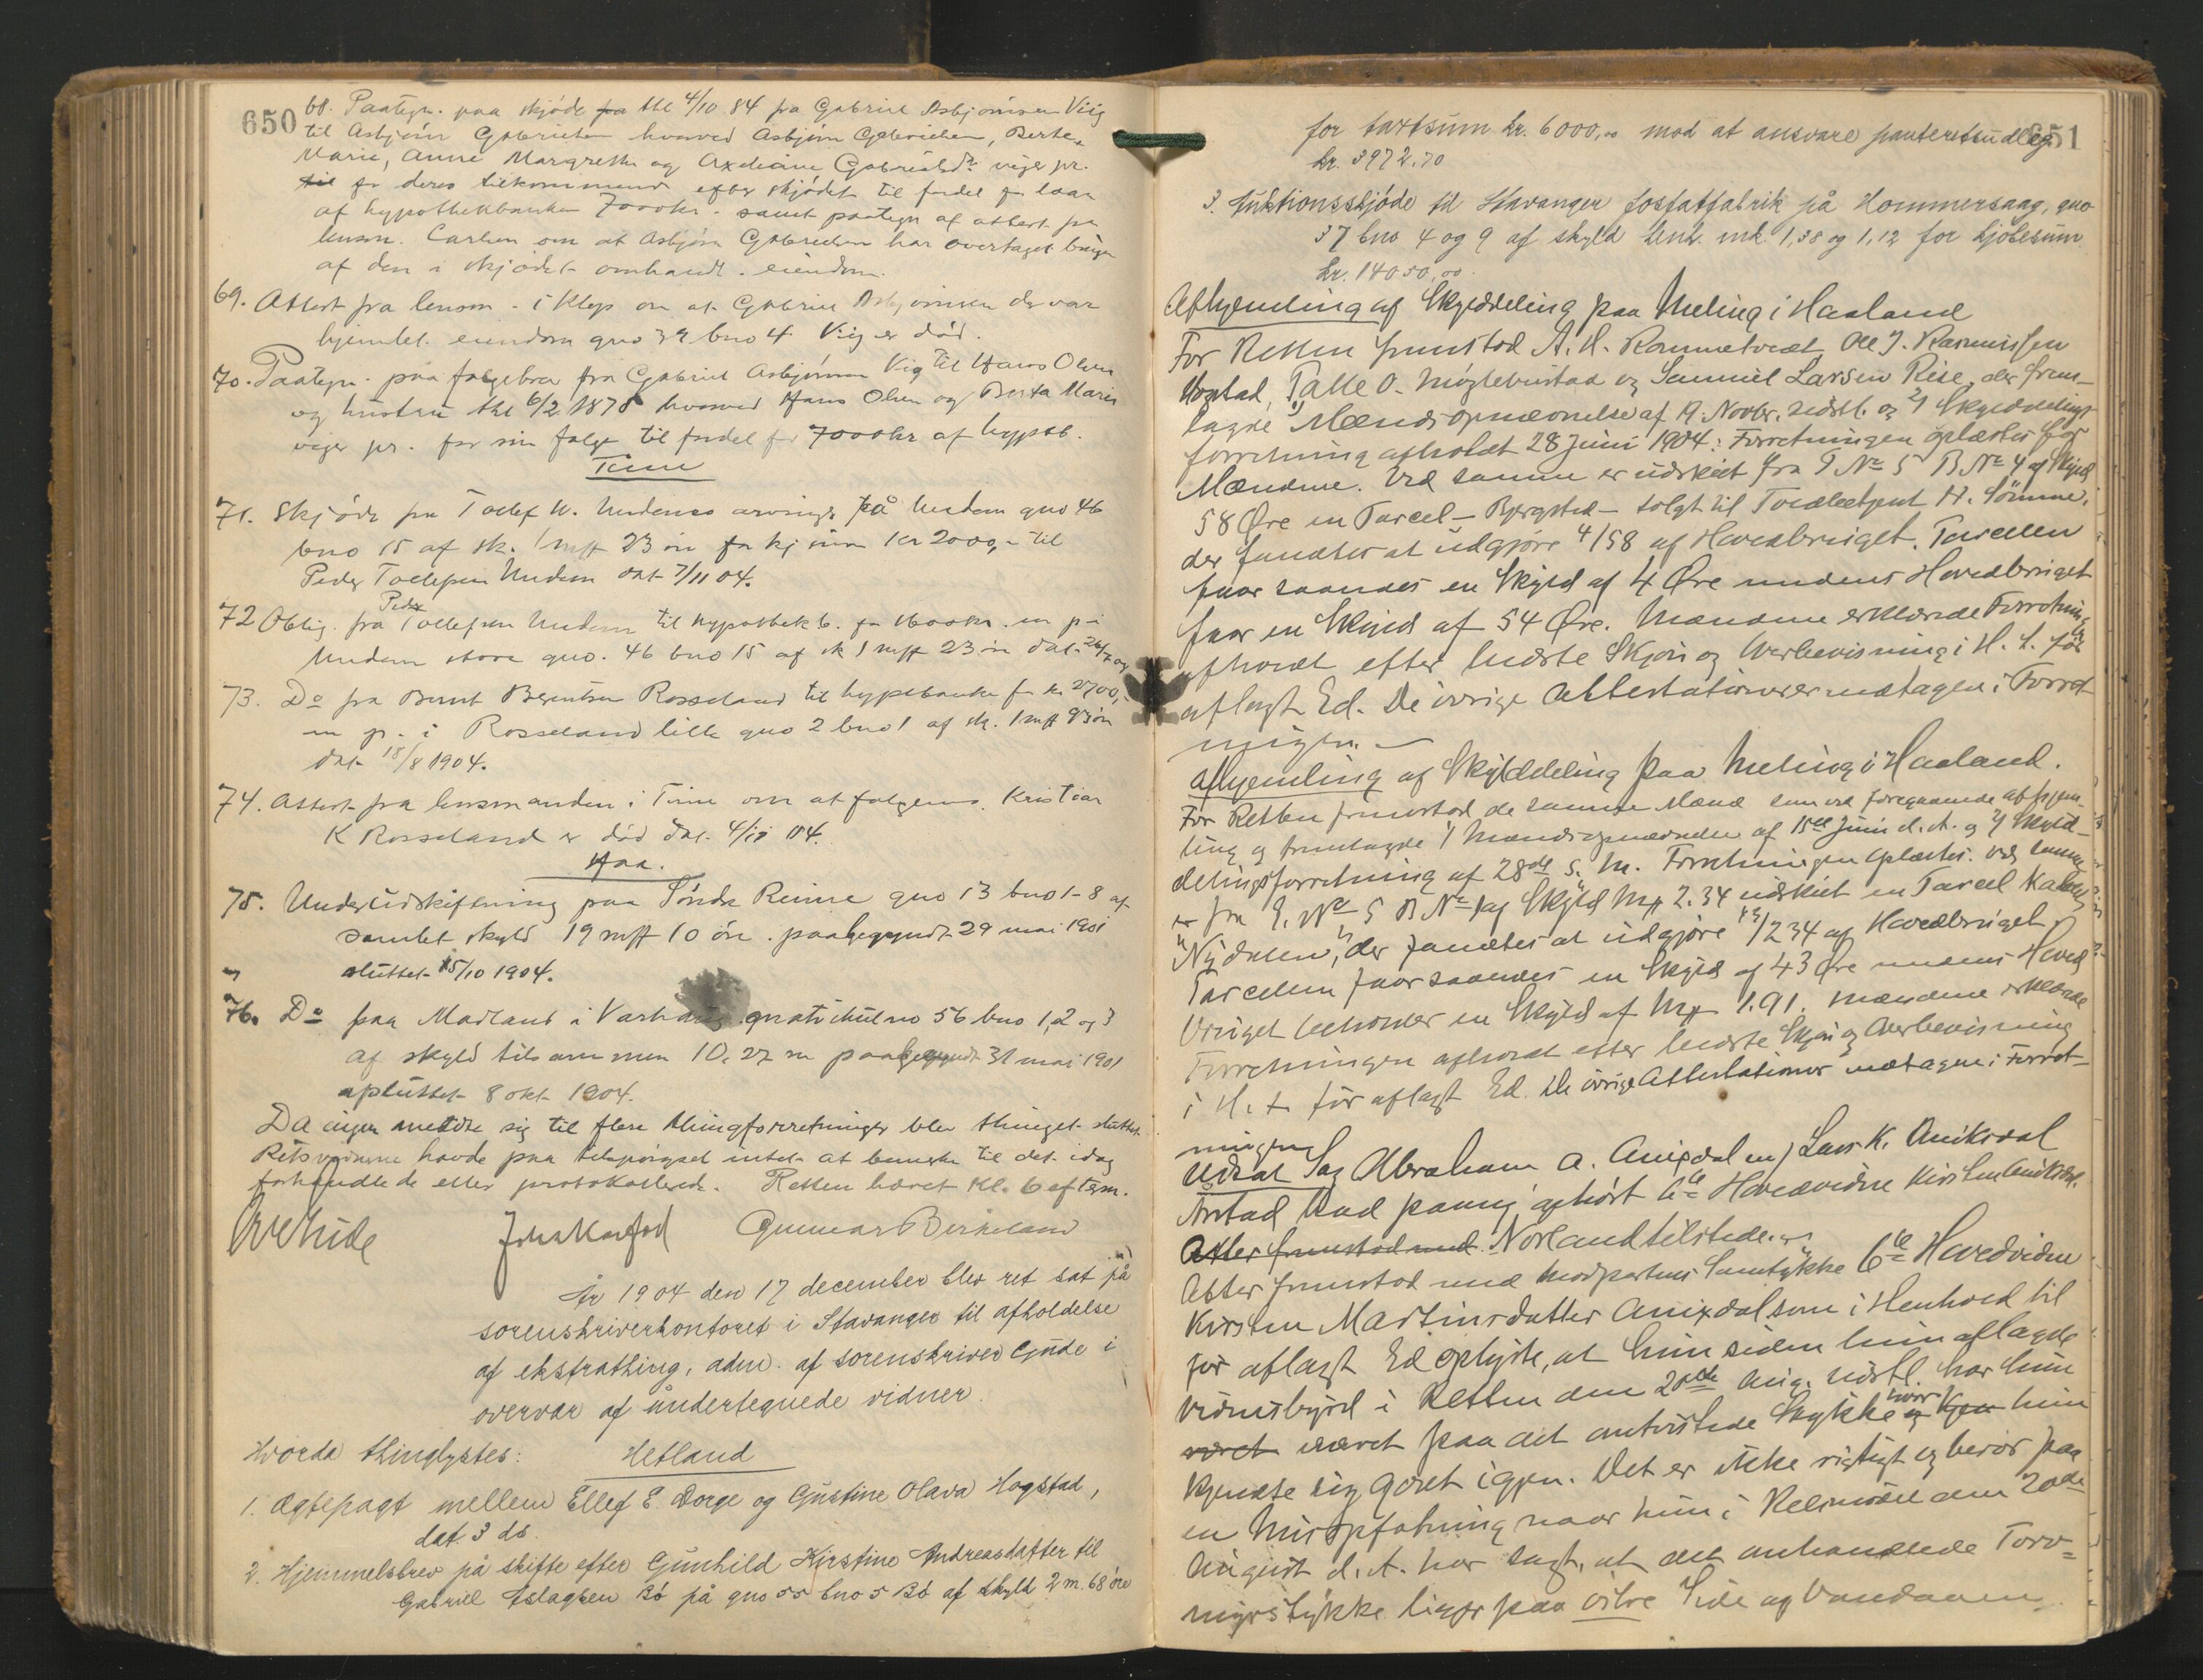 650
68. Paategn. paa skjøde fra thl 4/10 84 fra Gabriel Asbjørnsen Viig
til Asbjørn Gabrielsen hvorved Asbjørn Gabrielsen, Berte
Marie, Anne Margrethe og Axeliane Gabrielsd. viger pr.
til for deres tilkommende efter skjødet til fordel for laan
af hypothekbanken 7000 kr. samt paategn af attest fra
lensm. Carlsen om at Asbjørn Gabrielsen har overtaget brugen
af den i skjødet omhandl. eiendom.
69. Attest fra lensm. i Klep om at Gabriel Asbjørnsen der var
hjemlet eiendom gno 39 bno 4 Vig er død.
70. Paategn. paa følgebrev fra Gabriel Asbjørnsen Vig til Hans Olsen
og hustru thl 6/2 1878 hvorved Hans Olsen og Berta Marie
viger pr. for sin følge til fordel for 7000 kr af hypotb.
Time
71. Skjøde fra Tollef W. Undems arvinger på Undem gno 46
bno 15 af sk. 1 mrk 23 øre for kjsum Kr 2000,- til
Peder Tollefsen Undem dat 7/11 04.
72 Oblig. fra Peder Tollefsen Undem til hypothekb. for 1600 kr. m p i
Undem store gno. 46 bno 15 af sk 1 mrk 23 øre dat. 24/7 04
73. Do fra Bernt Berentsen Rosseland til hypotbanken for kr 2700,-
m p. i Rosseland lille gno 2 bno 1 af sk. 1 mrk 93 øre
dat 18/8 1904.
74. Attest fra lensmanden i Time om at følgemo. Kristian
K Rosseland er død dat. 4/10 04.
Haa.
75. Underudskiftning paa Søndre Reime gno 13 bno 1-8 af
samlet skyld 19 mrk 10 øre. paabegyndt 29 mai 1901
sluttet 15/10 1904.
76. Do paa Madland i Varhaug matrikulno 56 bno 1, 2 og 3
af skyld tilsammen 10,27 m paabegyndt 31 mai 1901
afsluttet 8 okt 1904.
Da ingen meldte sig til flere thingforretninger blev thinget sluttet.
Retsvidnerne havde paa tilspørgsel intet at bemerke til det idag
forhandlede eller protokollerede. Retten hævet Kl. 6 efterm.
Gunnar Birkeland
År 1904 den 17 december blev ret sat på
sorenskriverkontoret i Stavanger til afholdelse
af ekstrathing, adm. af sorenskriver Gude i
overvær af undertegnede vidner.
Hvorda thinglystes:
Hetland
1. Ægtepagt mellem Ellef E. Dorge og Gustine Olava Hogstad,
dat. 3 ds.
2. Hjemmelsbrev på skifte efter Gunhild Kirstine Andreasdatter til
Gabriel Aslagsen Bø på gno 55 bno 5 Bø af skyld 2 m. 68 øre
651
for taxtsum kr. 6000,00 mod at ansvare panteretsudlæg
kr. 3972.70
3. Auktionsskjøde til Stavanger fosfatfabrik på Hommersaag, gno
37 bno 4 og 9 af skyld henh. mk. 1,38 og 1,12 for kjøbesum
kr. 14050,00.
Afhjemling af Skylddeling paa Meling i Haaland
For Retten fremstod A. H. Rommetvedt, Ole J. Rasmussen
Hogstad, Talle O. Møglebustad og Samuel Larsen Rise, der frem-
lagde 1) Mændsopnævnelse af 19. Novbr. sidstl. og 2) Skylddelings-
forretning afholdt 28 Juni 1904: Forretningen oplæstes for
Mændene. Ved samme er udskilt fra G No 5 B No 4 af Skyld
58 Øre en Parcel – Bjergsted – solgt til Toldbetjent H. Sømme,
der fandtes at udgjøre 4/58 af Hovedbruget. Parcellen
faar saaledes en Skyld af 4 Øre medens Hovedbruget
faar en Skyld af 54 Øre. Mændene erklærede Forretningen
afholdt efter bedste Skjøn og Overbevisning i H. t. før
aflagt Ed. De øvrige Attestationer er medtagen i Forret-
ningen. –
Afhjemling af Skylddeling paa Meling i Haaland.
For Retten fremstod de samme Mænd som ved foregaaende afhjem-
ling og fremlagde 1) Mændsopnævnelse af 15de Juni d. A. og 2) Skyld-
delingsforretning af 28de s. M. Forretningen oplæstes. Ved samme
er fra G. No 5 B No 1 af Skyld Mrk 2.34 udskilt en Parcel kaldet
"Nydalen", der fandtes at udgjøre 43/234 af Hovedbruget
Parcellen faar saaledes en Skyld af 43 Øre medens Hoved
bruget beholder en Skyld af Mrk 1.91. Mændene erklærede
Forretningen afholdt efter bedste Skjøn og Overbevisning
i H. t. før aflagt Ed. De øvrige Attestationer medtagen i Forret-
ningen
Udsat Sag Abraham A. Aniksdal m/ Lars K. Aniksdal
Atter fremstod med Norland tilstede.
Atter fremstod med Modpartens Samtykke 6te Hovedvidne
Kirsten Martinsdatter Aniksdal som i Henhold til
før aflagt Ed oplyste, at hun siden hun aflagde
Vidnesbyrd i Retten den 20de Aug. sidstl. har hun
været været paa det omtvistede Stykke og hvor Kjen hun
kjendte sig godt igjen. Det er ikke rigtigt og beror paa
en Misopfatning naar hun i Retsmøde den 20de
August d. A. har sagt, at det omhandlede Torv=
myrstykke ligger paa vestre Side af Vandaaren.